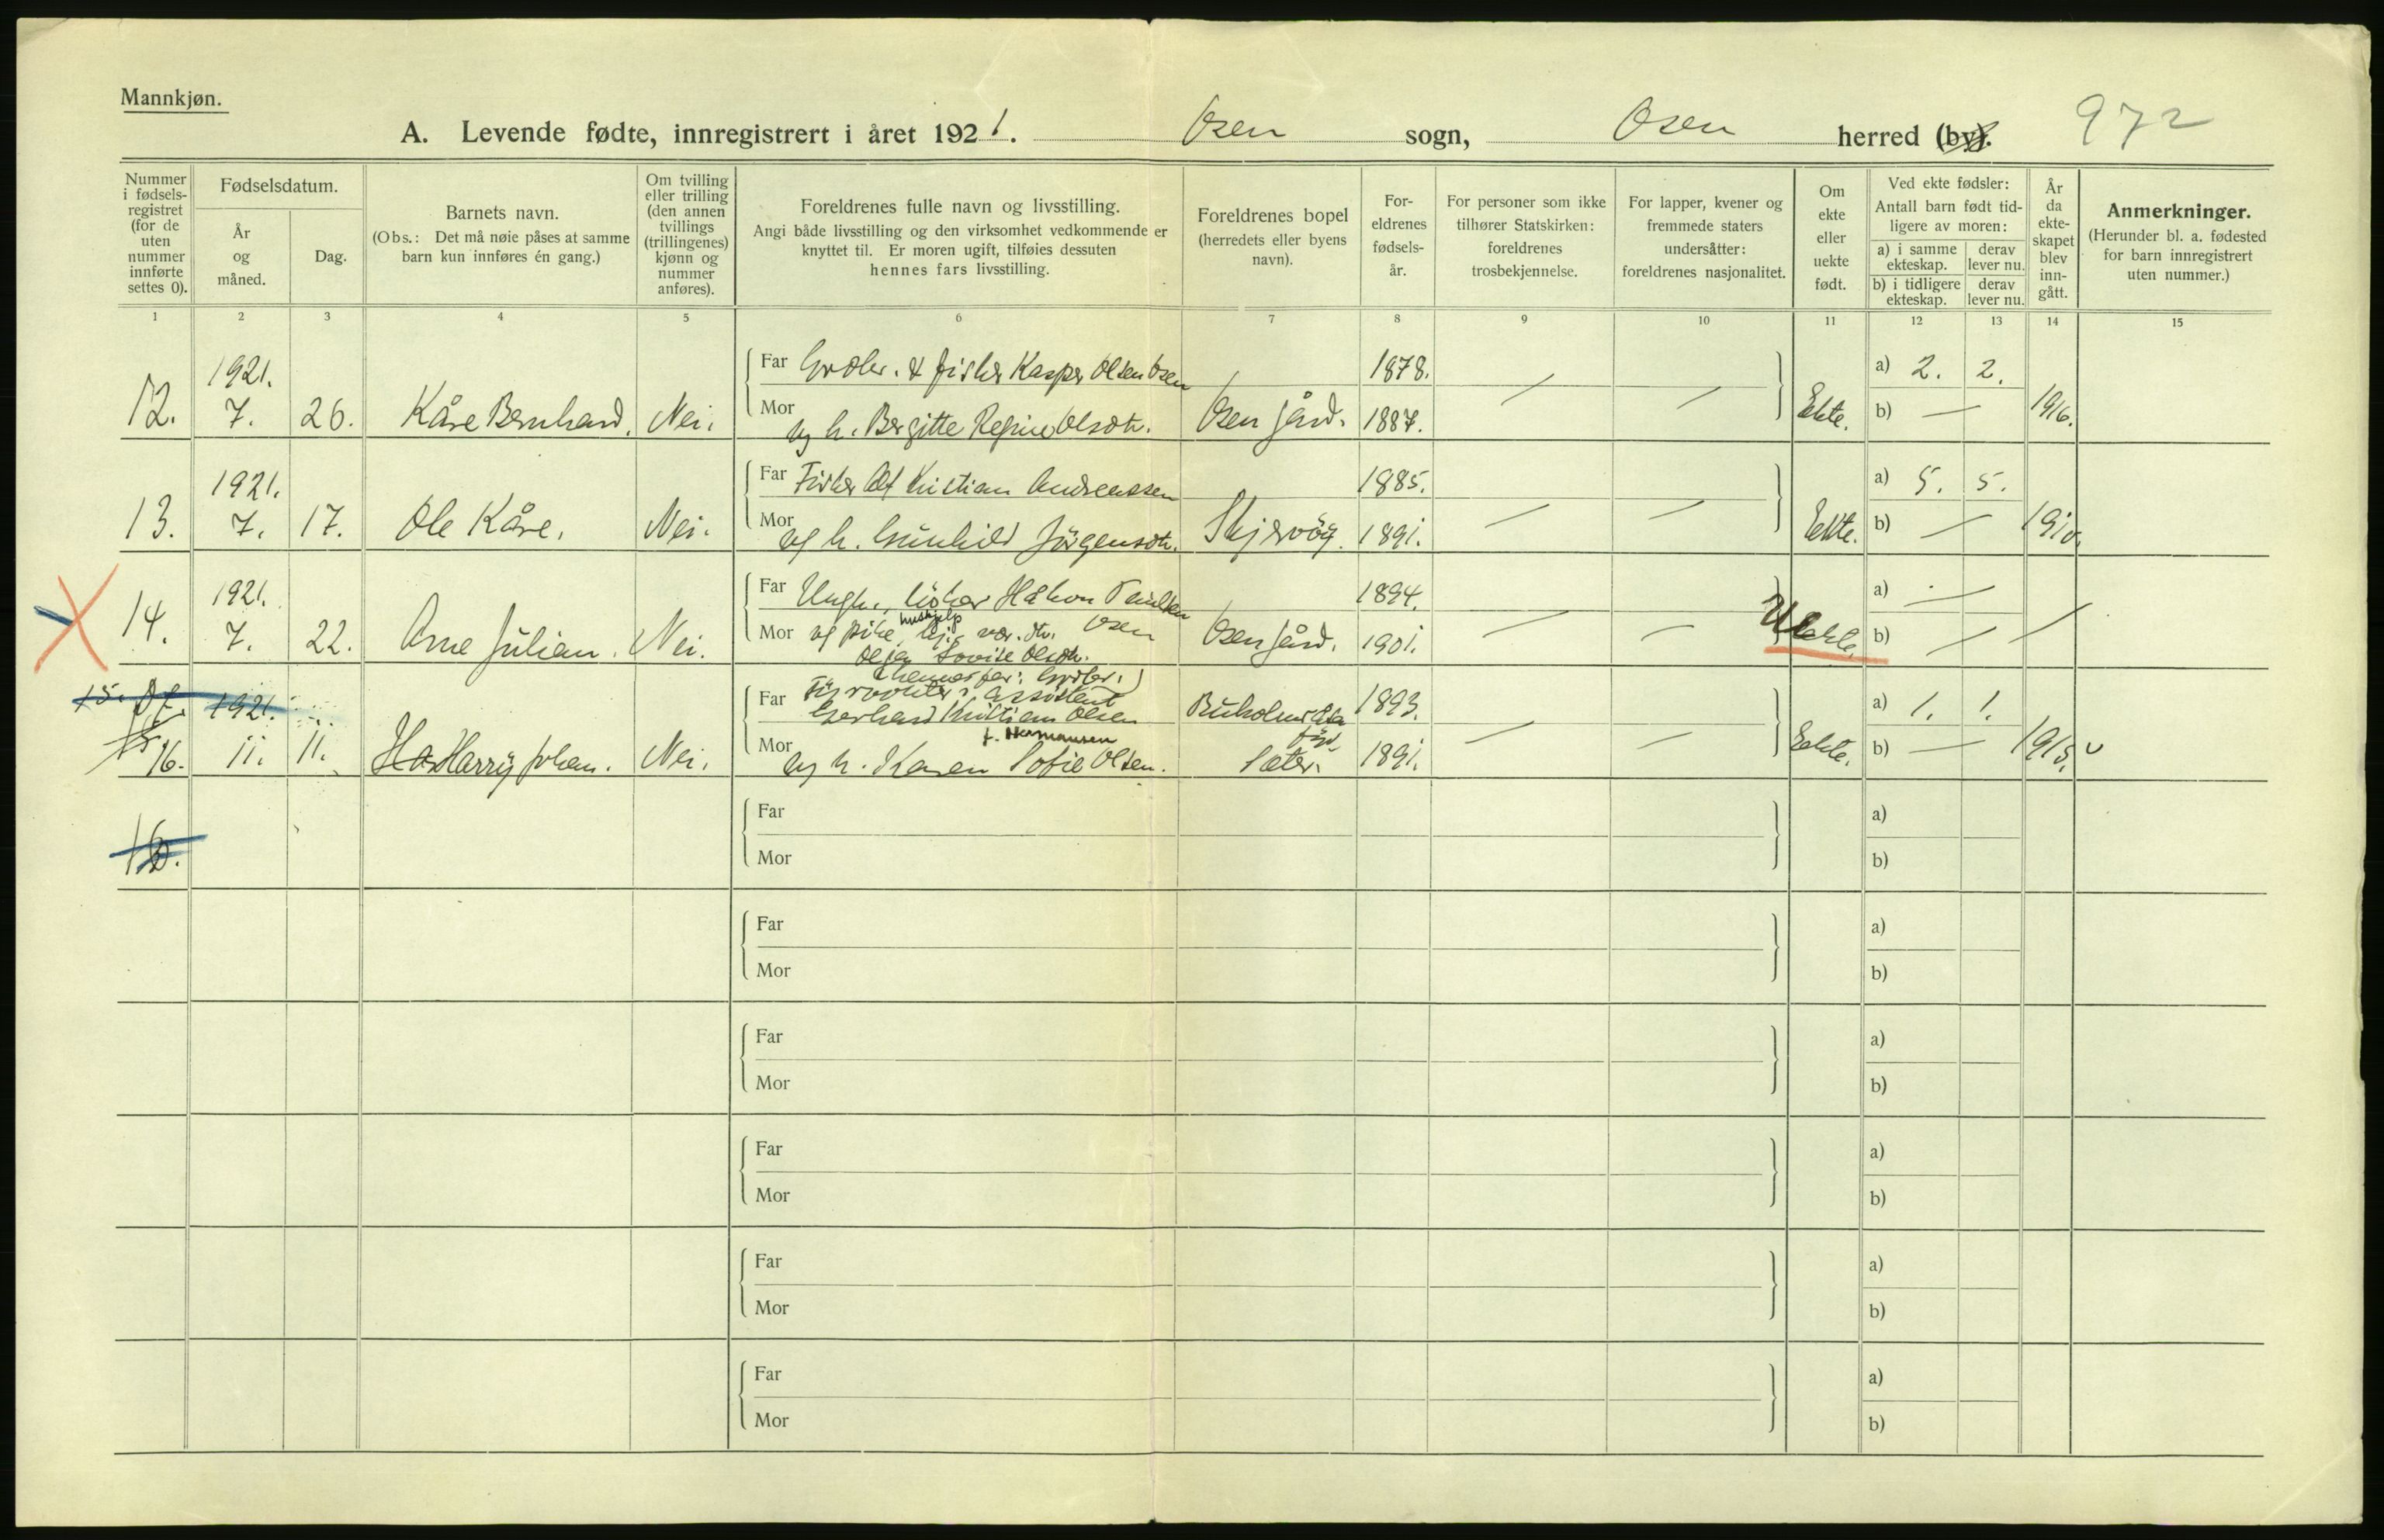 Mannkjøn.
A. Levende fødte, innregistrert i året 1921. Osen sogn, Osen herred (by). 972
Nummer i fødsels-registret (for de uten nummer innførte settes 0).
Fødselsdatum.
År og måned.
Dag.
Barnets navn.
(Obs.: Det må nøie påses at samme barn kun innføres én gang.)
Om tvilling eller trilling (den annen tvillings (trillingenes) kjønn og nummer anføres).
Foreldrenes fulle navn og livsstilling.
Angi både livsstilling og den virksomhet vedkommende er knyttet til. Er moren ugift, tilføies dessuten hennes fars livsstilling.
Foreldrenes bopel (herredets eller byens navn).
For-eldrenes fødsels-år.
For personer som ikke tilhører Statskirken: foreldrenes trosbekjennelse.
For lapper, kvener og fremmede staters undersåtter: foreldrenes nasjonalitet.
Om ekte eller uekte født.
Ved ekte fødsler: Antall barn født tid-ligere av moren:
a) i samme ekteskap. derav lever nu.
b) i tidligere ekteskap. derav lever nu.
År da ekte-skapet blev inn-gått.
Anmerkninger.
(Herunder bl. a. fødested for barn innregistrert uten nummer.)
1 2 3 4 5 6 7 8 9 10 11 12 13 14 15
1921. Far Grdbr. & fisker Kasper Olsen Osen 1878. a) 2. 2.
12. 7. 26. Kåre Bernhard. Nei. Mor og h. Bergitte Regine Olsdtr. Osen gård. 1887. Ekte. b) — 1916.
1921. Far Fisker Alf Kristian Andreassen 1885. a) 5. 5.
13. 7. 17. Ole Kåre. Nei. Mor og h. Gunhild Jörgensdtr. Skjervöy. 1891. Ekte. b) — 1910.
1921. Far Ungk., fisker Håkon Paulsen 1894. a) —
14. 7. 22. Arne Julian. Nei. Mor og pike, hushjelp Osen Osen gård. 1901. Uekte. b) — —
Olga Lovise Olsdtr.
(hennes far: Grdbr.)
15. 1921. Far Fyrvokter assistent
Gerhard Kristian Olsen Buholmråsa fyr 1893. a) 1. 1.
16. 11. 11. Harry Johan. Nei. Mor og h. Karen Sofie Olsen. f. Hermansen Sæter. 1891. Ekte. b) — 1918.
16. Far a)
Mor b)
Far a)
Mor b)
Far a)
Mor b)
Far a)
Mor b)
Far a)
Mor b)
Far a)
Mor b)